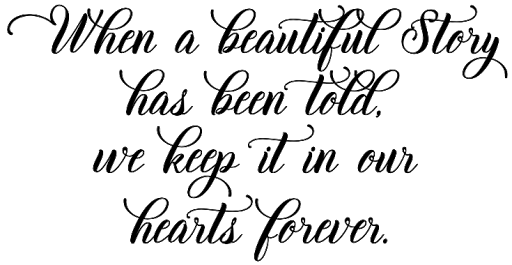 When a beautiful Story
has been told,
we keep it in our
hearts forever.